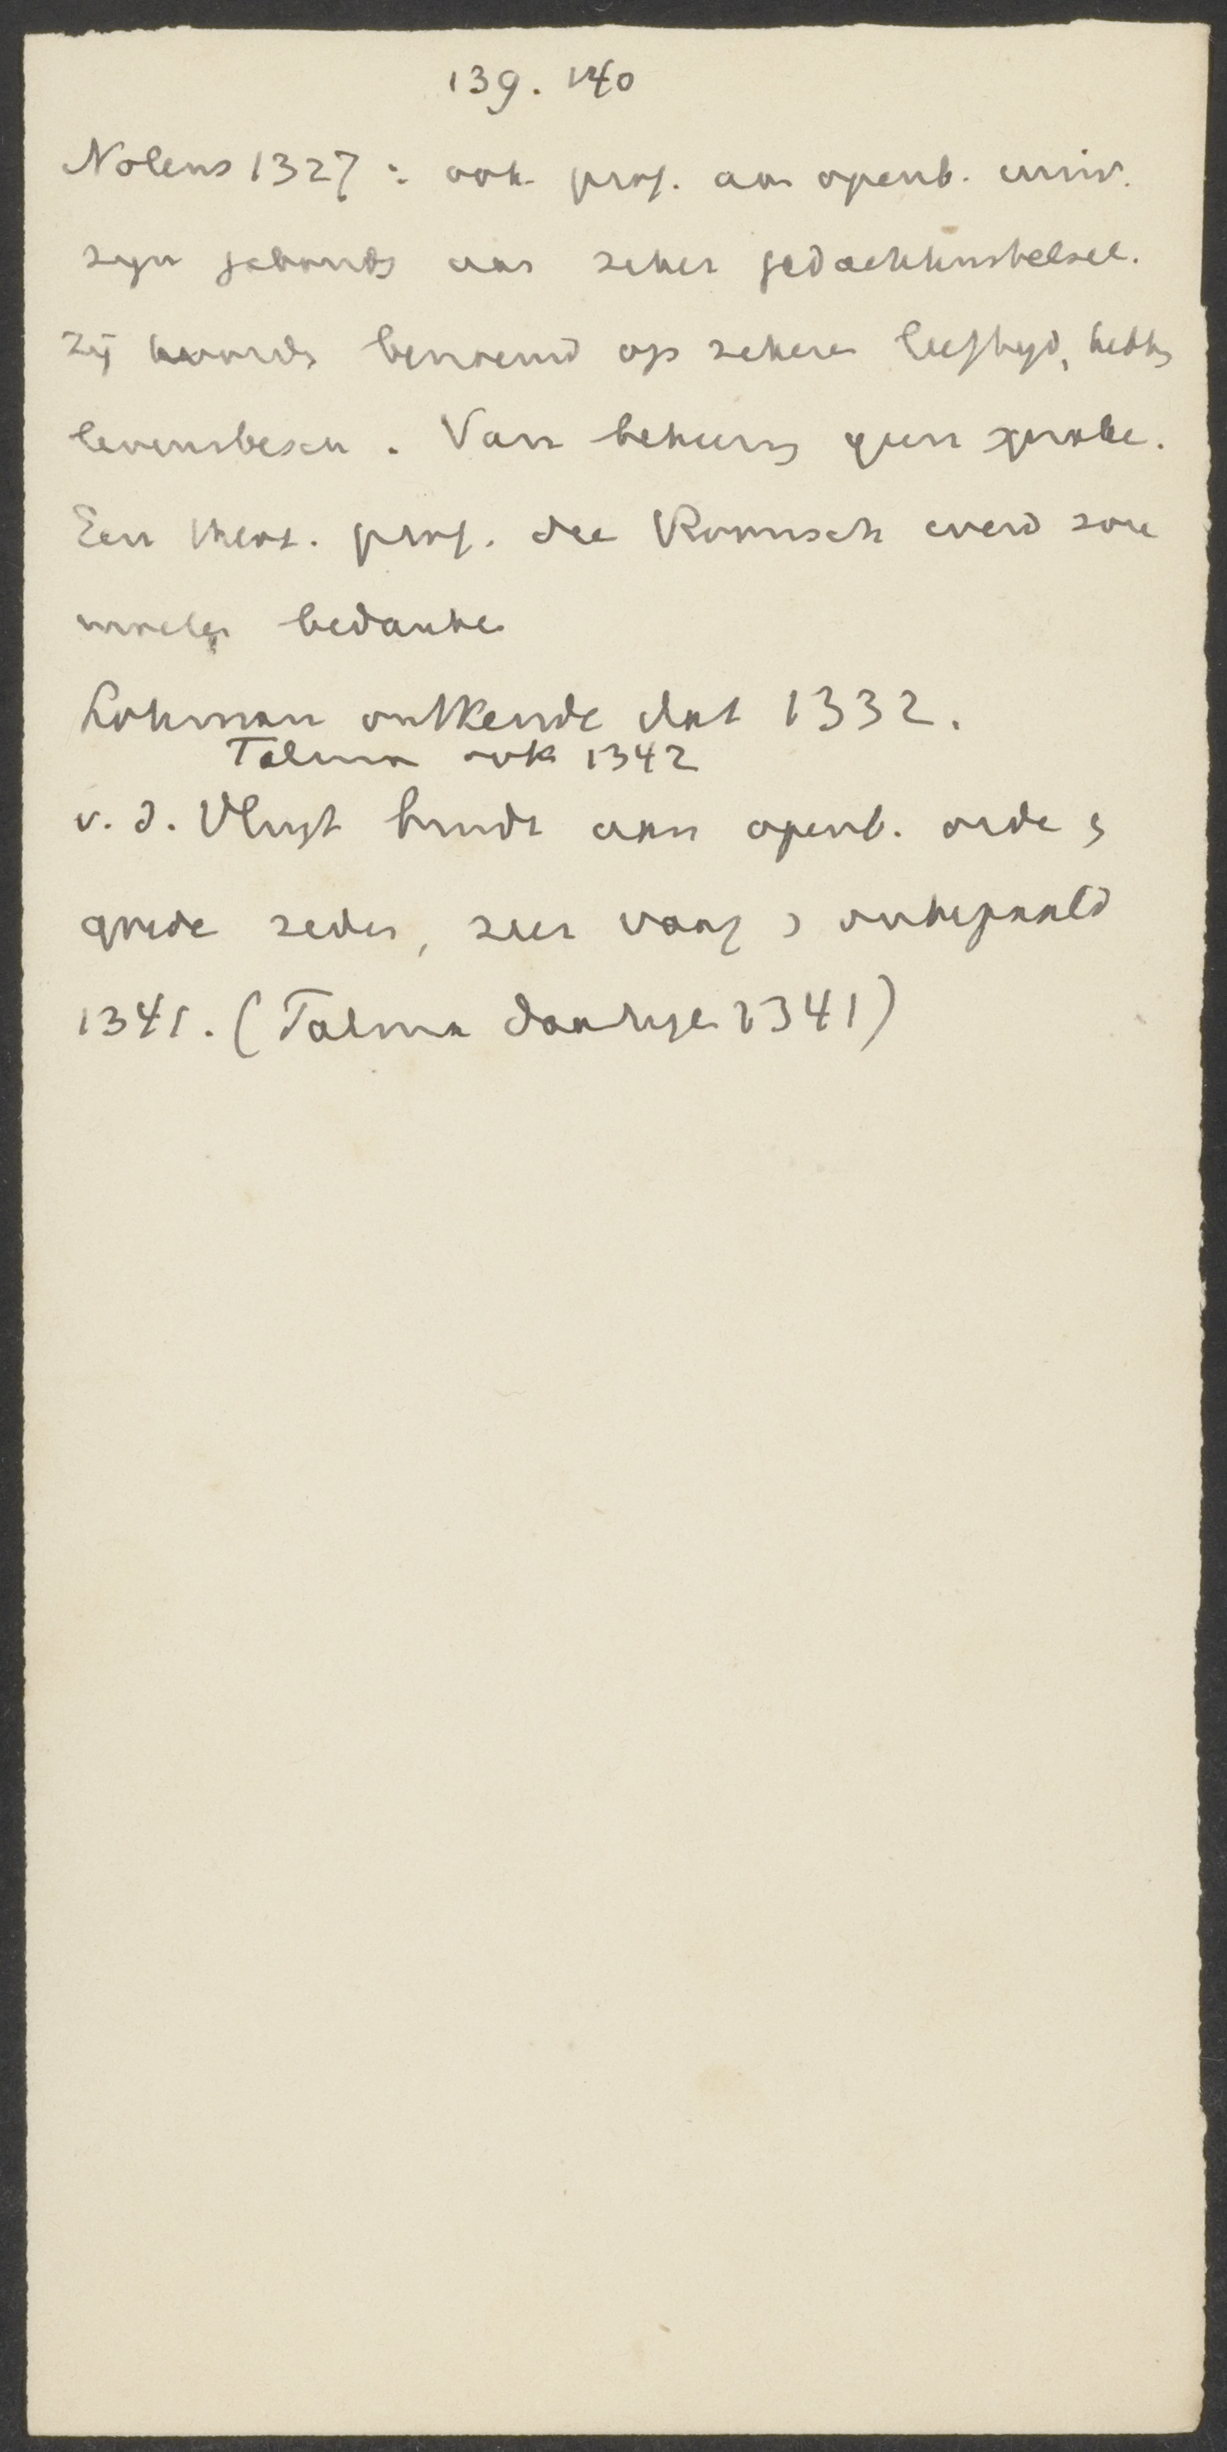 139. 140
Nolens 1327: ook prof. aan openb. univ.
zijn gebonden aan zeker gedachtenstelsel.
Zij worden benoemd op zekere leeftijd, hebben
levensbesch. Van beteug geen sprake.
Een theol. prof. die Roomsch werd zou
moeten bedanken
Lohman ontkende dat 1332.
Talma ook 1342
v. d. Vlugt bindt aan openb. orde en
goede zeden, zeer vaag en onbepaald
1341. (Talma daartegen 1341)